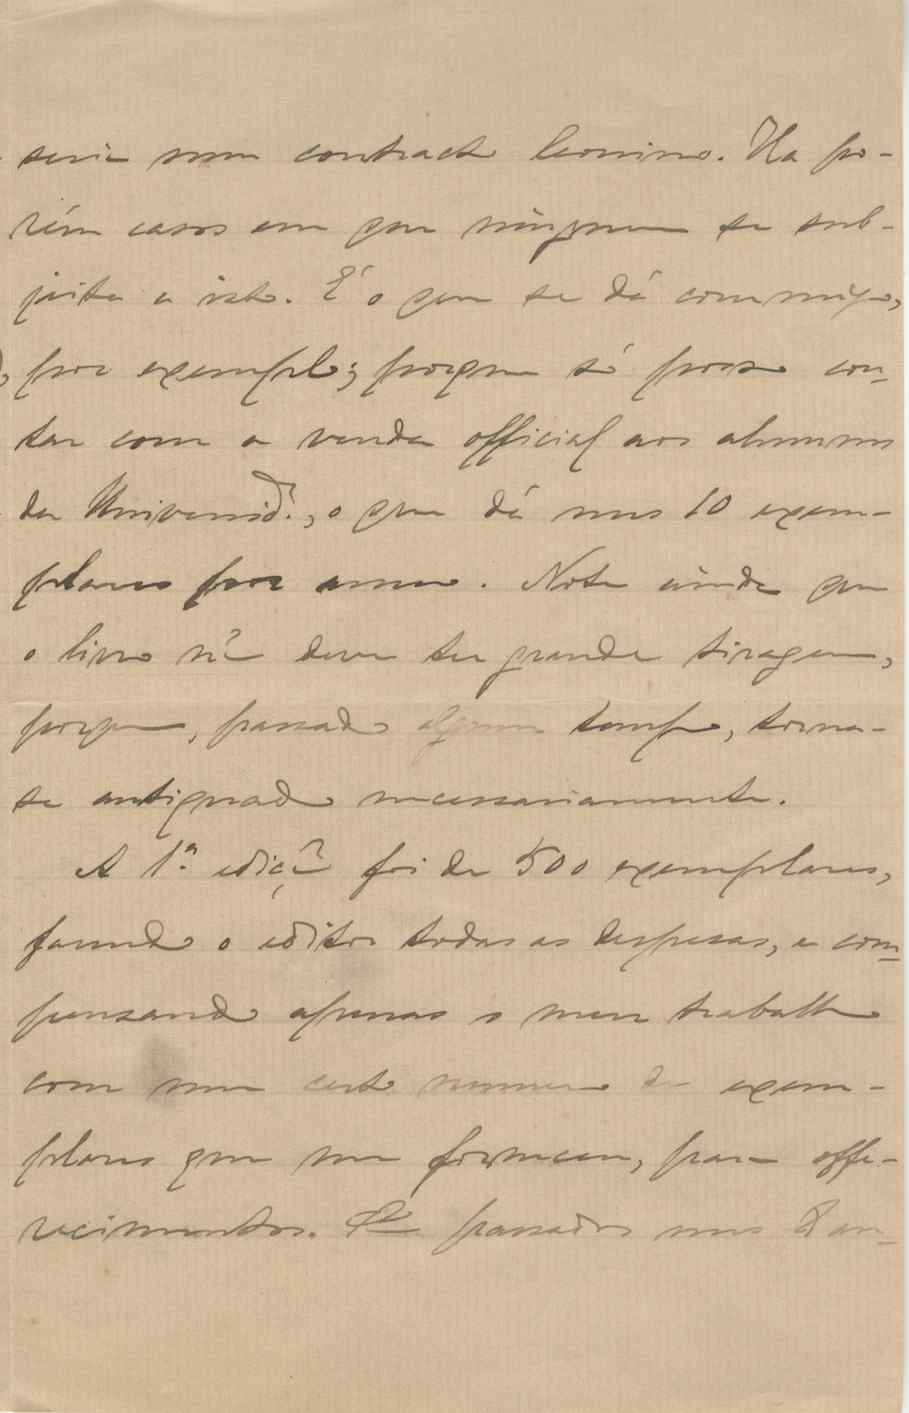 seria um contracto leonino. Ha po-
rém casos em que ninguem se sub-
jeita a isto. É o que se dá commigo,
por exemplo; porque só posso con-
tar com a venda official aos alumnos
da Universid.e, o que dá uns 10 exem-
plares por anno. Note ainda que
o livro nã deve ter grande tiragem,
porque, passado algum tempo, torna-
se antiquado necessariamente.
A 1.ª ediçã foi de 500 exemplares,
fazendo o editor todas as despesas, e com-
pensando apenas o meu trabalho
com um certo numero de exem-
plares que me forneceu, para offe-
recimentos. passados uns 8 an-